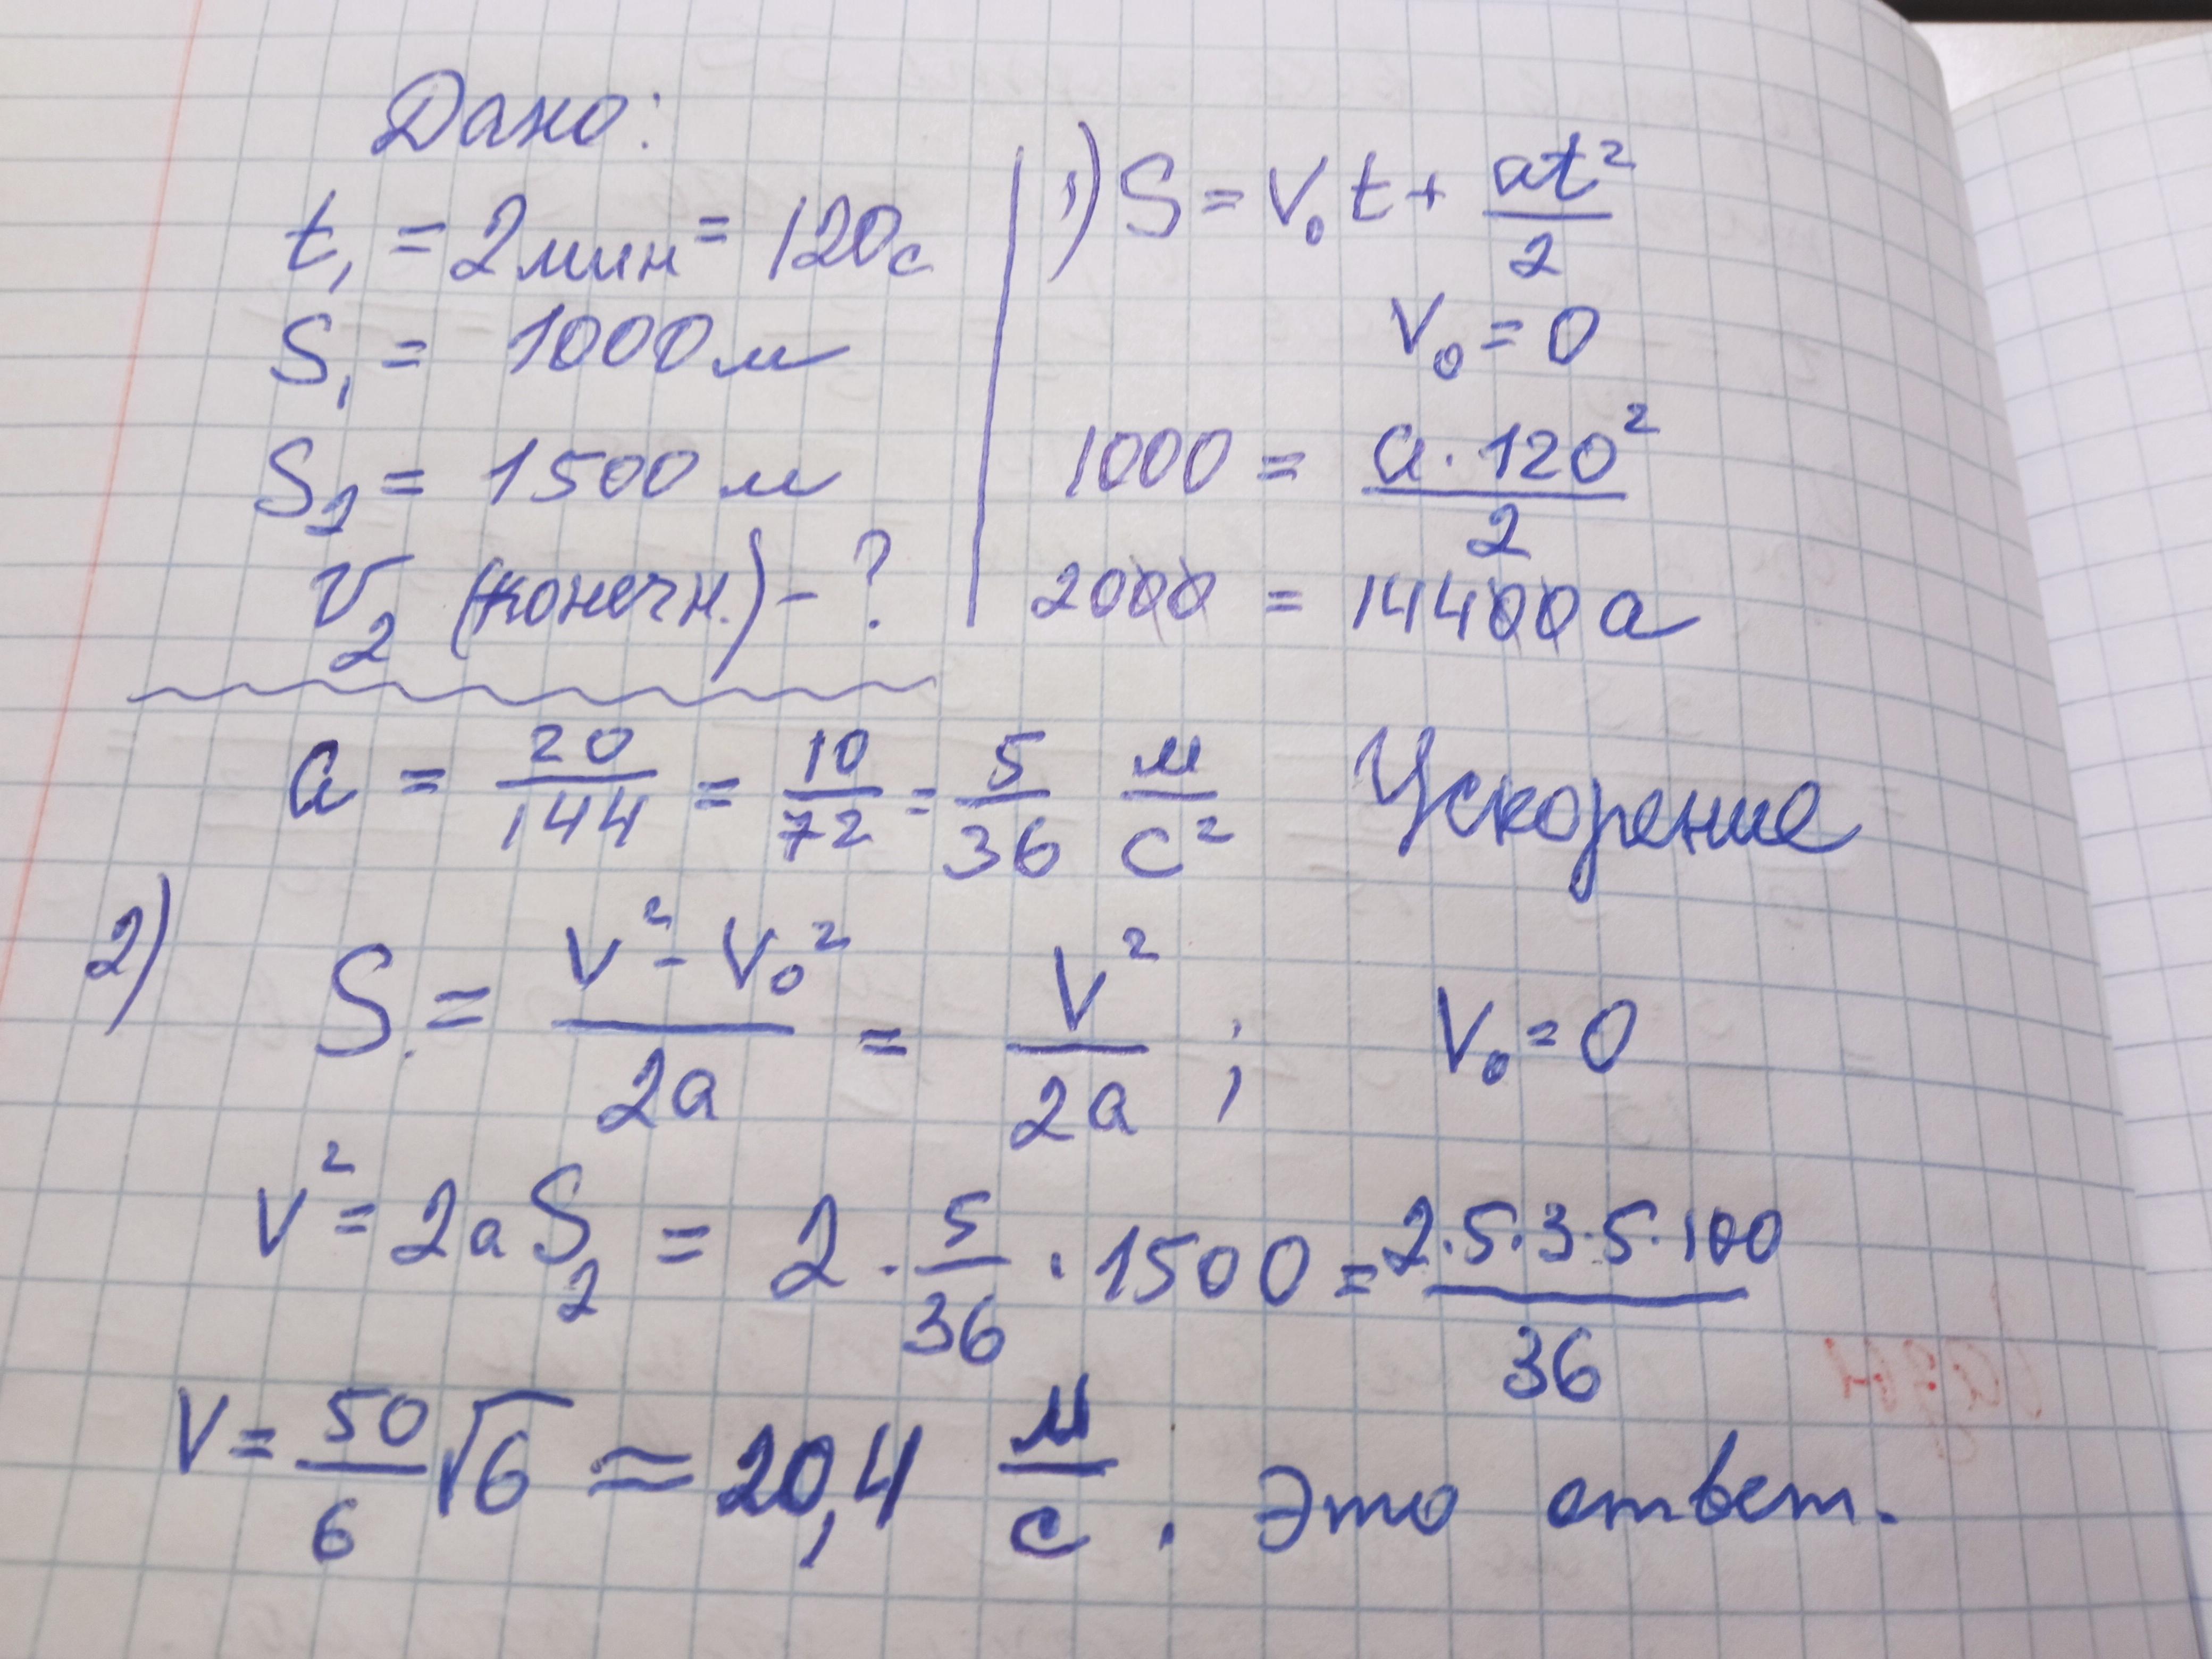 Дано:
t₁ = 2 мин = 120 с
S₁ = 1000 м
S₂ = 1500 м
V₂ (конечн.) - ?
1) S = V₀ t + at²/2
V₀ = 0
1000 = a · 120²/2
2000 = 14400 a
a = 20/144 = 10/72 = 5/36 м/с² Ускорение
2) S = V² - V₀²/2a = V²/2a ; V₀ = 0
V² = 2aS₂ = 2 · 5/36 · 1500 = 2·5·3·5·100/36
V = 50/6 √6 ≈ 20,4 м/с . Это ответ.